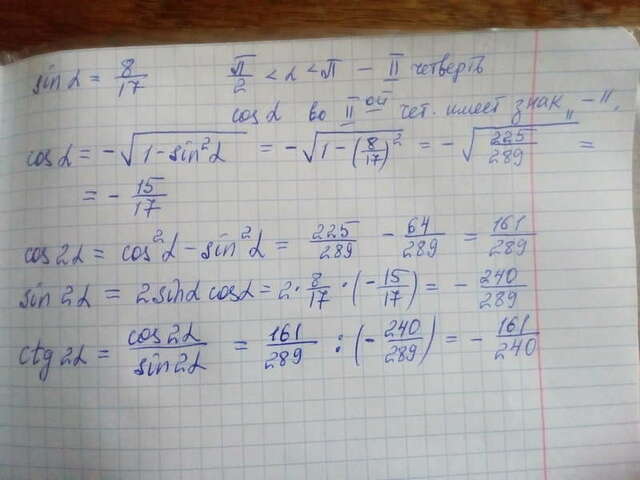 sin α = 8/17   π/2 < α < π – II четверть
cos α во II ой чет. имеет знак „–"
cos α = –√(1 – sin²α) = –√(1 – (8/17)²) = –√(225/289) =
= – 15/17
cos 2α = cos²α – sin²α = 225/289 – 64/289 = 161/289
sin 2α = 2 sin α cos α = 2 · 8/17 · (– 15/17) = – 240/289
ctg 2α = cos 2α/sin 2α = 161/289 : (– 240/289) = – 161/240